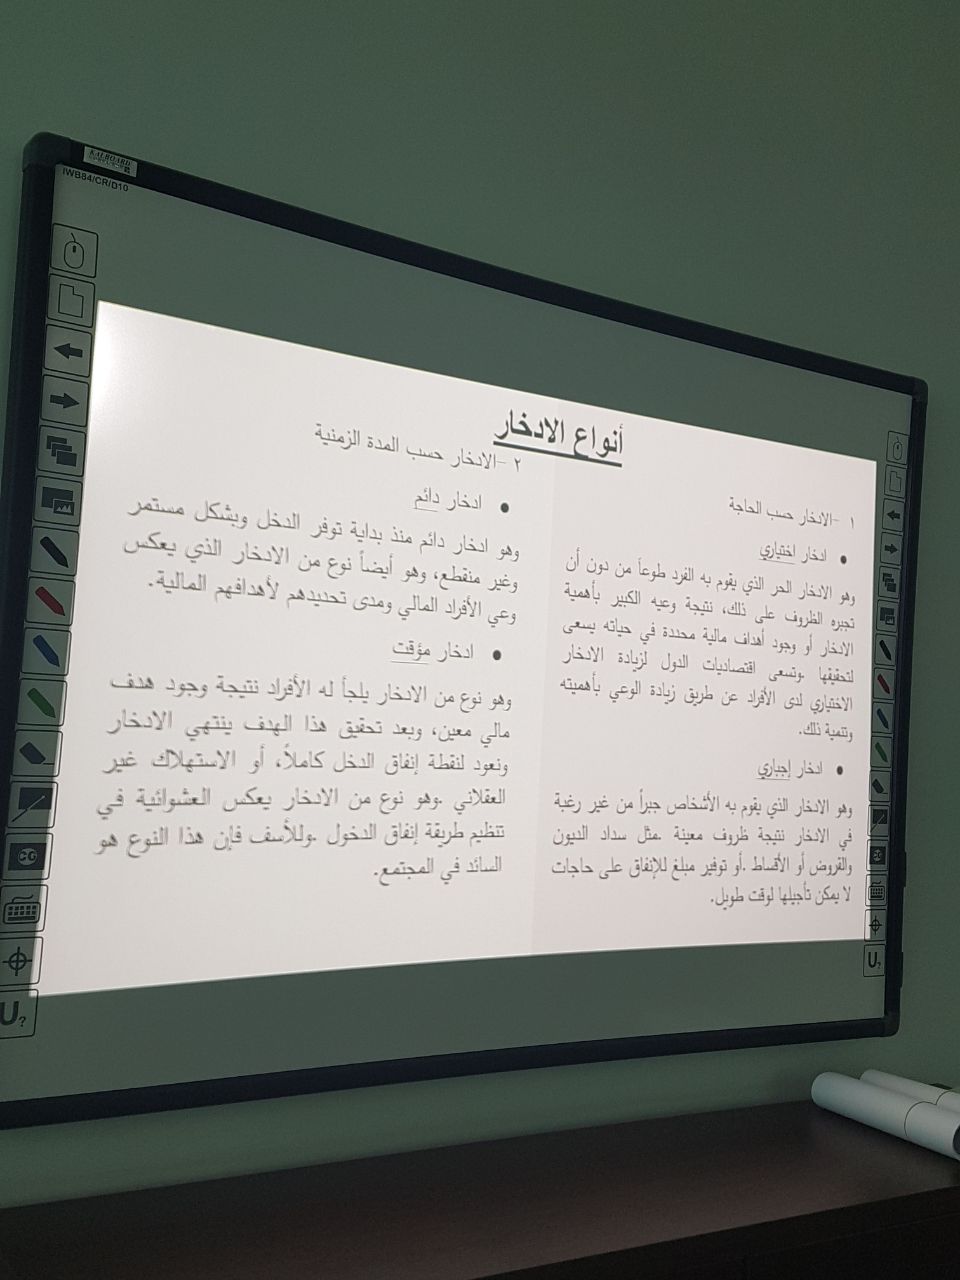 KALBOARD
IWB84/CR/D10
أنواع الادخار
١ -الادخار حسب الحاجة
• ادخار اختياري
وهو الادخار الحر الذي يقوم به الفرد طوعاً من دون أن
تجبره الظروف على ذلك، نتيجة وعيه الكبير بأهمية
الادخار أو وجود أهداف مالية محددة في حياته يسعى
لتحقيقها .وتسعى اقتصاديات الدول لزيادة الادخار
الاختياري لدى الأفراد عن طريق زيادة الوعي بأهميته
وتنمية ذلك.
• ادخار إجباري
وهو الادخار الذي يقوم به الأشخاص جبراً من غير رغبة
في الادخار نتيجة ظروف معينة .مثل سداد الديون
والقروض أو الأقساط .أو توفير مبلغ للإنفاق على حاجات
لا يمكن تأجيلها لوقت طويل.
٢ -الادخار حسب المدة الزمنية
• ادخار دائم
وهو ادخار دائم منذ بداية توفر الدخل وبشكل مستمر
وغير منقطع، وهو أيضاً نوع من الادخار الذي يعكس
وعي الأفراد المالي ومدى تحديدهم لأهدافهم المالية.
• ادخار مؤقت
وهو نوع من الادخار يلجأ له الأفراد نتيجة وجود هدف
مالي معين، وبعد تحقيق هذا الهدف ينتهي الادخار
ونعود لنقطة إنفاق الدخل كاملاً، أو الاستهلاك غير
العقلاني .وهو نوع من الادخار يعكس العشوائية في
تنظيم طريقة إنفاق الدخول .وللأسف فإن هذا النوع هو
السائد في المجتمع.
CG
U?
CG
U?